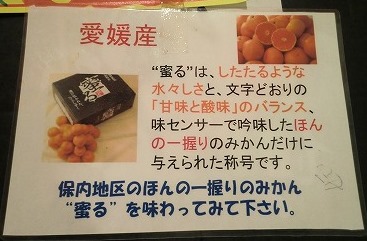 愛媛産
“蜜る”は、したたるような
水々しさと、文字どおりの
「甘味と酸味」のバランス、
味センサーで吟味したほん
の一握りのみかんだけに
与えられた称号です。
蜜る
保内地区のほんの一握りのみかん
“蜜る”を味わってみて下さい。